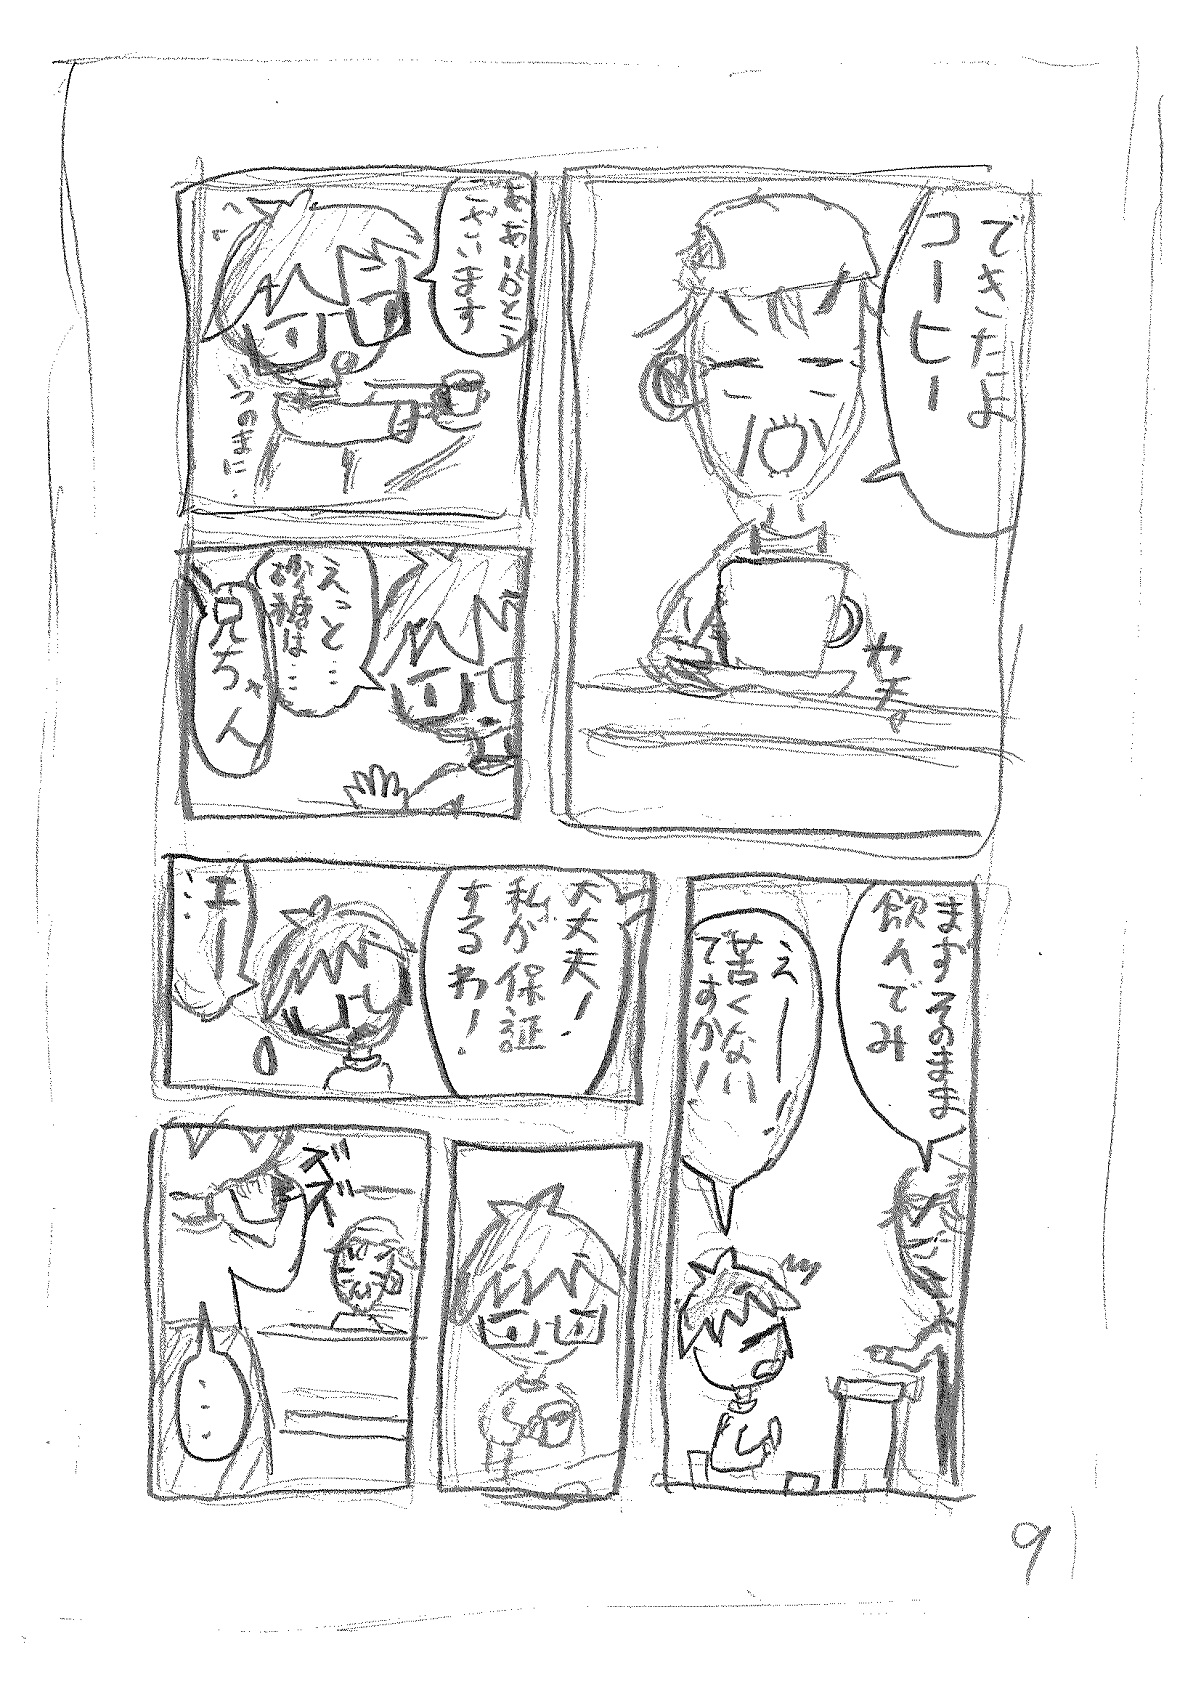 できたよ
コーヒー
やま。
ございます
いつのまに…
えっと
砂糖は……
兄ちゃん
まずそのまま
飲んでみ
えーー
苦くない
ですか!
大丈夫!
私が保証
するわ!
エー
…
ズズ
…
9